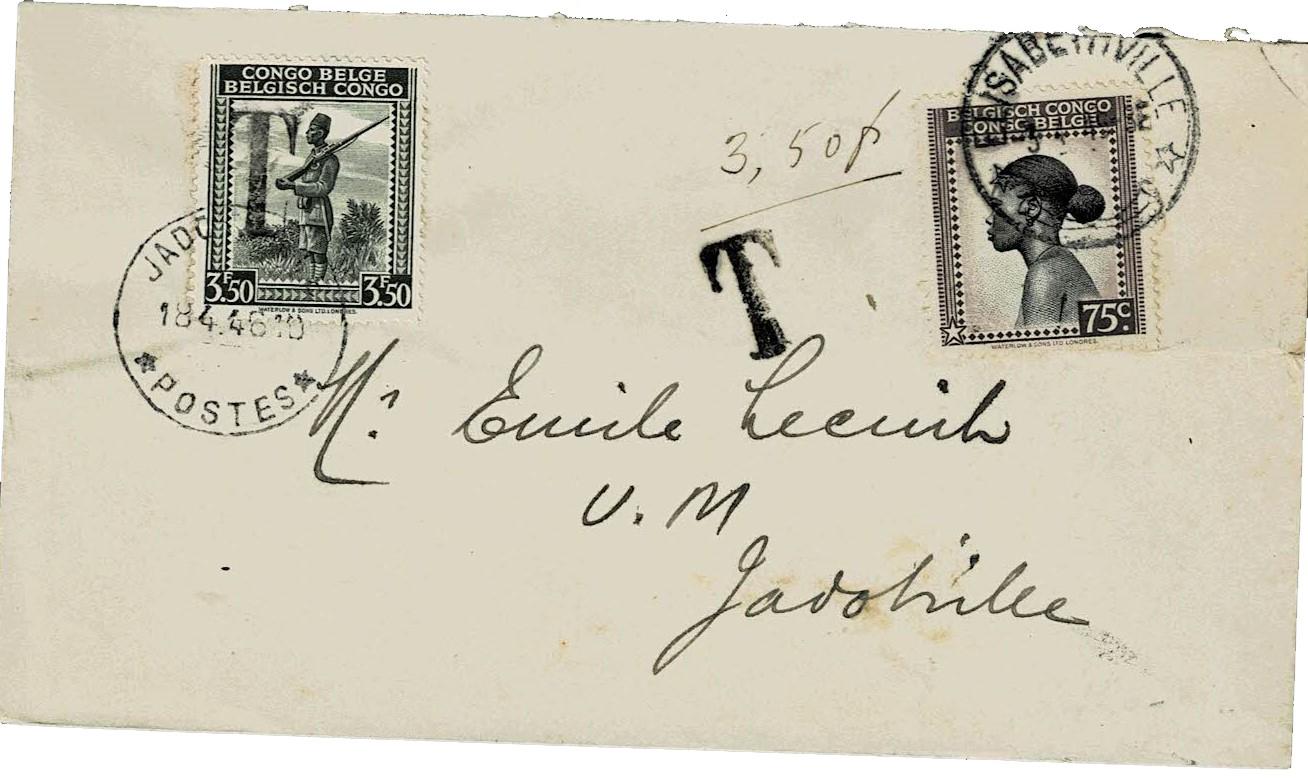 CONGO BELGE
BELGISCH CONGO
T
3F.50 3F.50
WATERLOW & SONS LTD. LONDRES.
JADO
18 4.46 10
★ POSTES ★
3,50f
T
ELISABETHVILLE
BELGISCH CONGO
CONGO BELGE
75c.
WATERLOW & SONS LTD. LONDRES.
Mr Emile
U.M
Jadotville